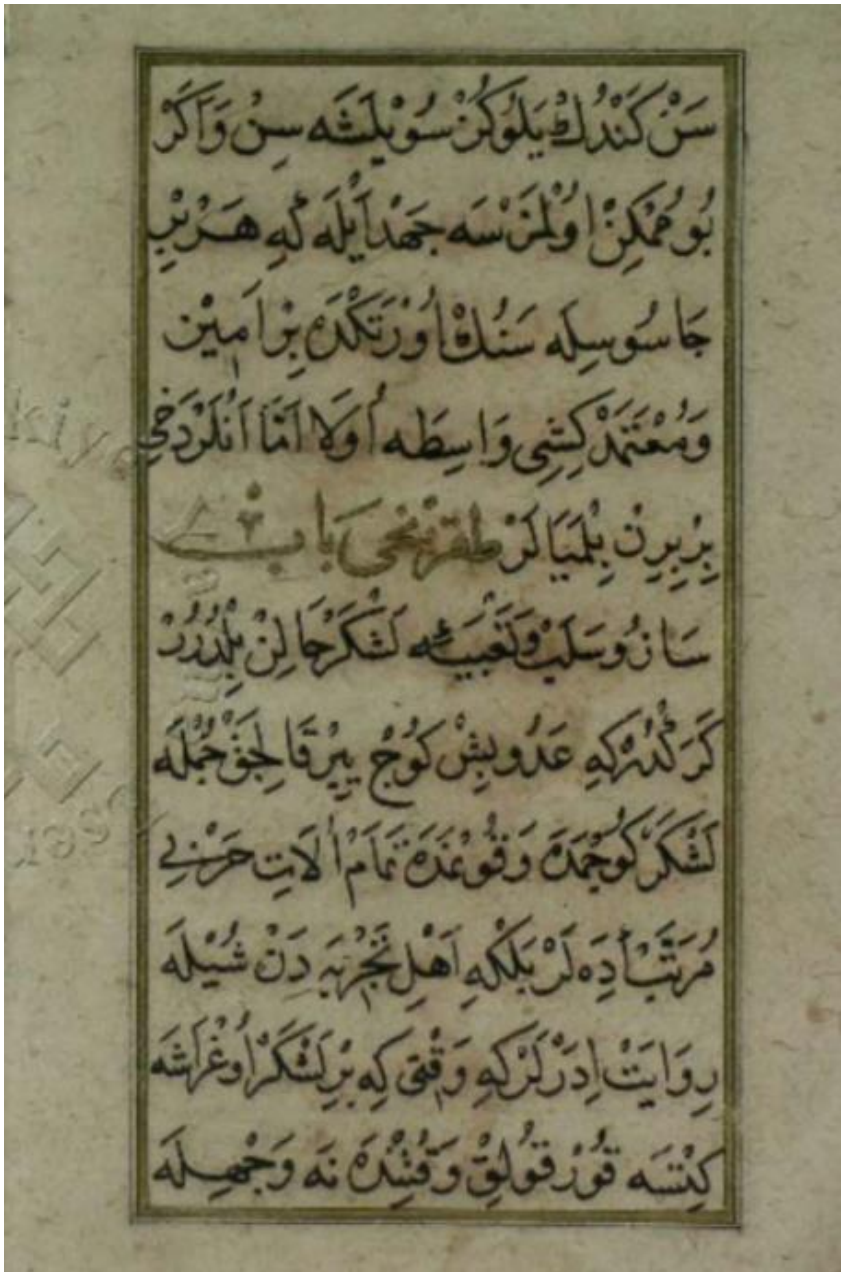 سَنْ كَنْدُكْ يَلُوكُزْ سُوْيْلَشَه سِنْ وَاَكَرْ
بُو مُمْكِنْ اوُلْمَزْسَه جَهْد اَيْلَه كِه هَرْ بِرْ
جَاسُوسِلَه سَنُكْ اُورْتَكْدَه بِرْ اَمِيْن
وَمُعْتَمَدْ كِشِى وَاسِطَه اُولَا اَمَّا اَنْلَرْدَخِى
بِرْبِرِنْ بِلْمَيَالَرْ طقزنجى بَاب
سَانْ وُسَلَبْ وَتَعْبِيَهٔ لَشْكَرْ حَالِنْ بِلْدُرُرْ
كَرَكْدُرْكِه عَدُو بِشْ كَوُجْ يِيْرْ قَالِجَقْ جُمْلَه
لَشْكَرْ كُوجْمَدَه وَقُونْمَدَه تَمَامْ اٰلَاتِ حَرْبِى
مُرَتَّبْ اِدَه لَرْ بَلْكِه اَهْلِ تَجْرُبَه دِنْ شُيْلَه
رِوَايَتْ اِدَرْلَرْكِه وَقْتِى كِه بِرْ لَشْكَرْ اُوغْرَاشَه
كِتْسَه قُورْقُولِقْ وَقْتِنْدَه نَه وَجْهِلَه